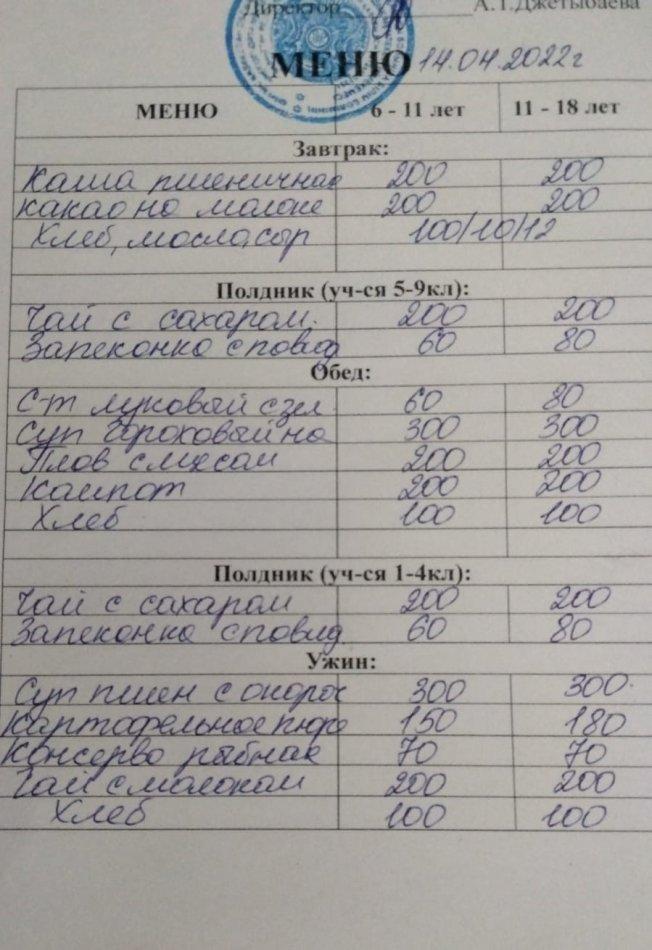 Директор А.Т.Джетыбаева
МЕНЮ 14.04.2022г
МЕНЮ 6 - 11 лет 11 - 18 лет
Завтрак:
Каша пшеничная 200 200
какао на молоке 200 200
Хлеб, масло, сыр 100/10/12
Полдник (уч-ся 5-9кл):
Чай с сахаром. 200 200
Запеканка с повид 60 80
Обед:
С-т луковый с зел. 60 80
Суп гороховый на 300 300
Плов с мясом 200 200
Компот 200 200
Хлеб 100 100
Полдник (уч-ся 1-4кл):
Чай с сахаром 200 200
Запеканка с повид 60 80
Ужин:
Суп пшен с окороч 300 300.
Картофельное пюре 150 180
Консерва рыбная 70 70
Чай с молоком 200 200
Хлеб 100 100